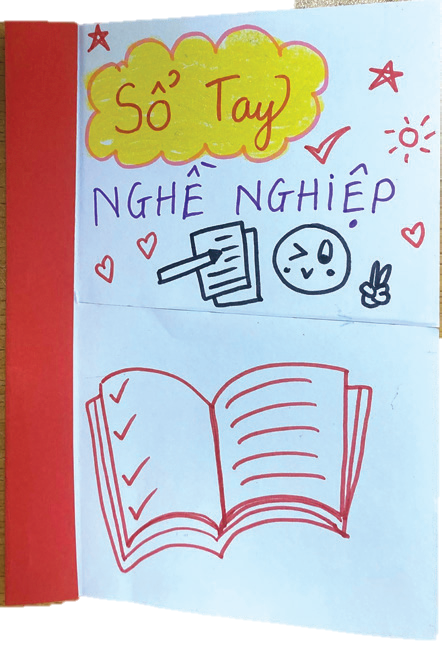 Sổ Tay
NGHỀ NGHIỆP